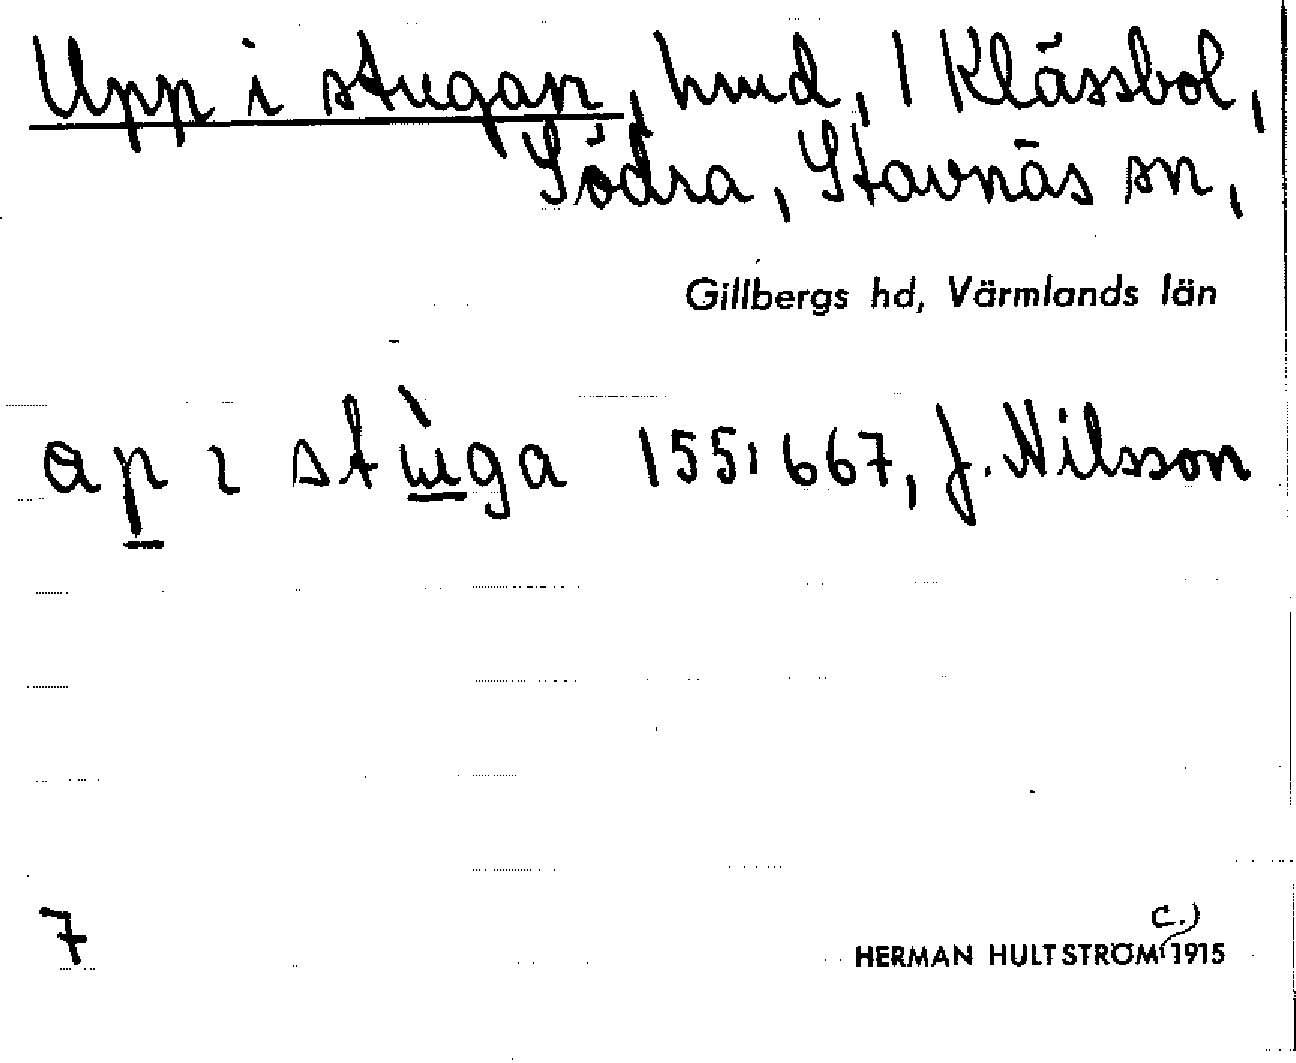 Upp i stugan, hmd, 1 Klässbol,
Södra, Stavnäs sn,
Gillbergs hd, Värmlands län
ap ɩ stɯ̀ga 155, 667, J. Nilsson
7
c.)
HERMAN HULTSTRÖM 1915